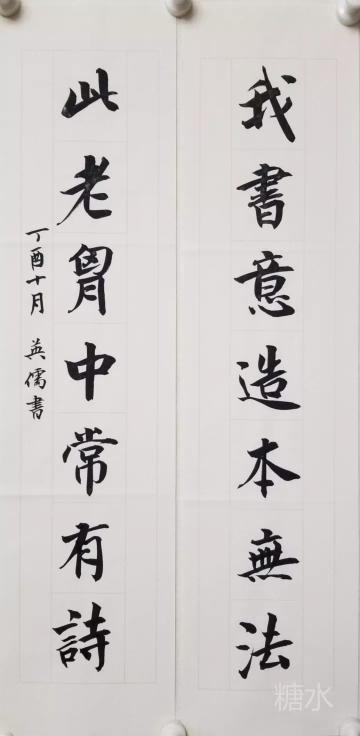 我書意造本無法
此老胷中常有詩
丁酉十月 英儒書
糖水